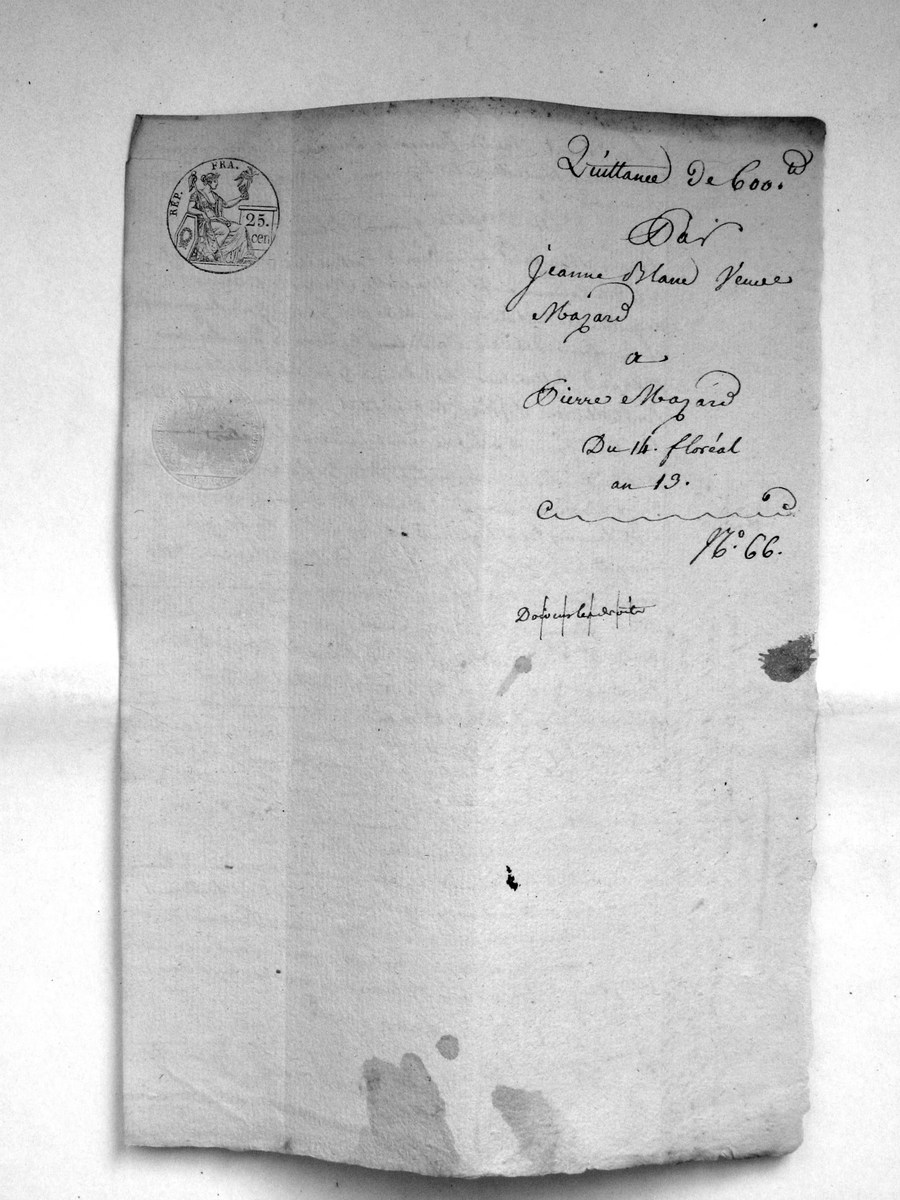 RÉP. FRA.
25.
cen
Quittance De 600.tt
Par
Jeanne Blanc Veuve
Mazard
a
Pierre Mazard
Du 14. floréal
an 13.
N.o 66.